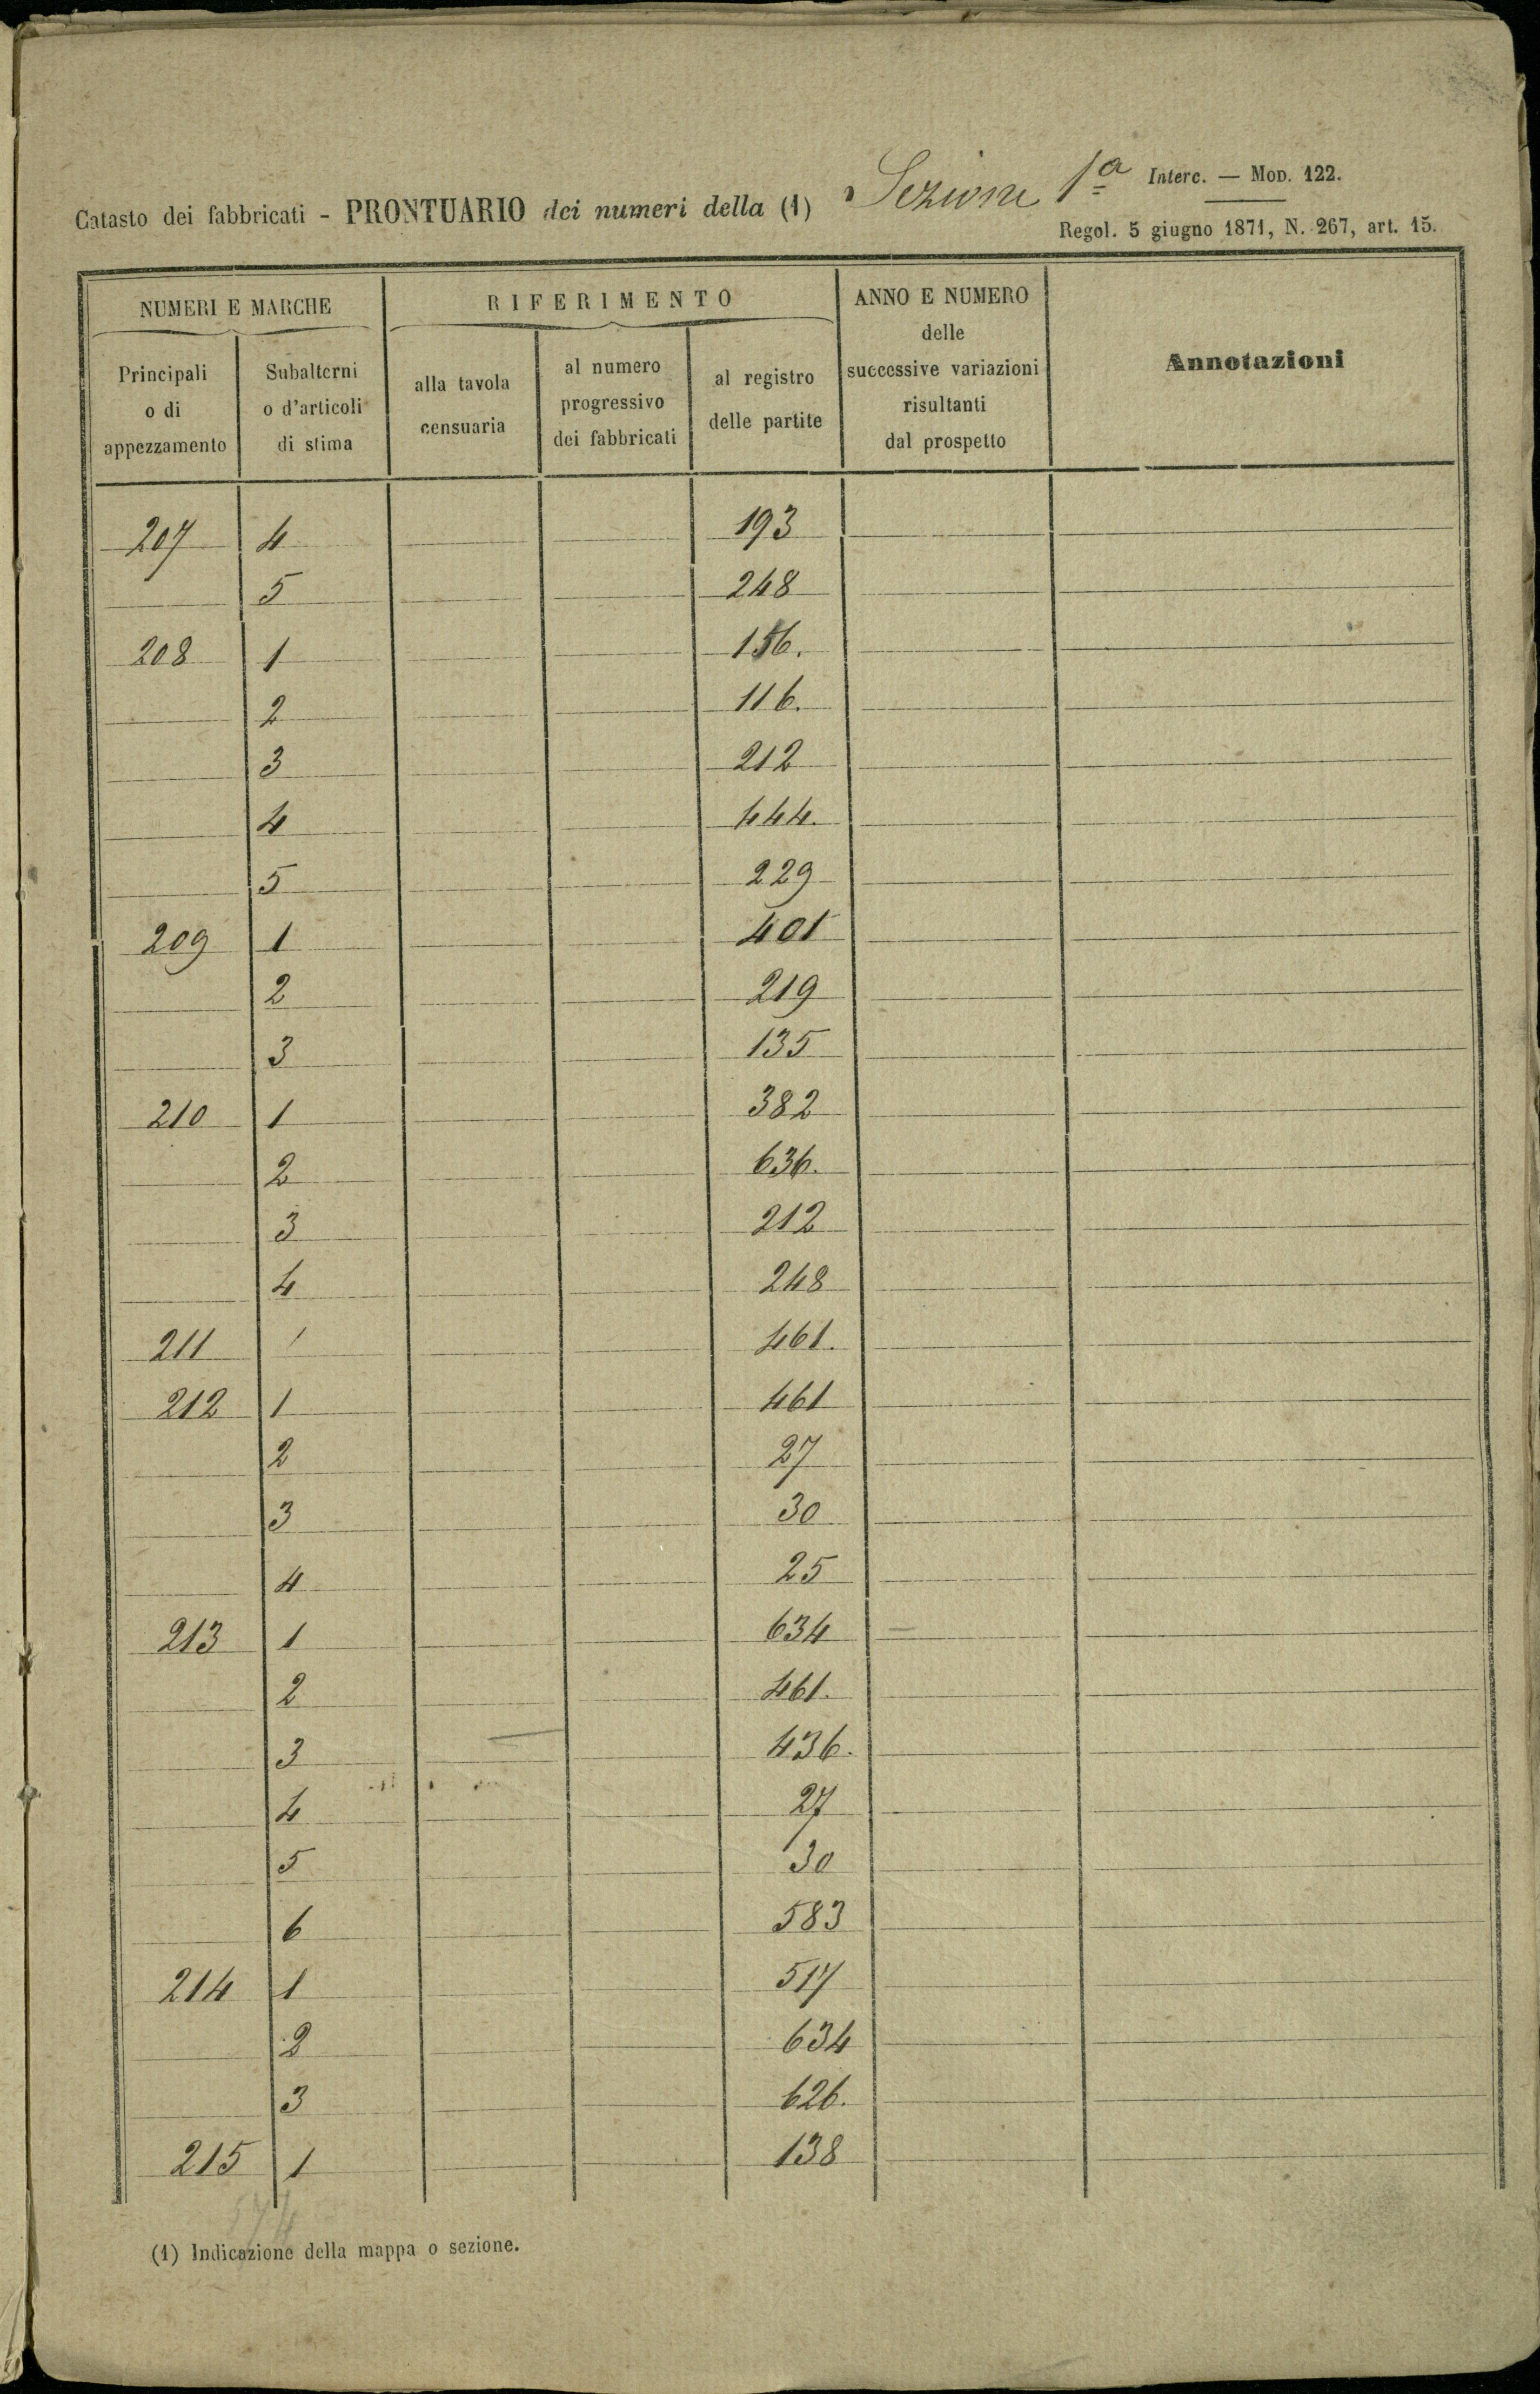 Catasto dei fabbricati - PRONTUARIO dei numeri della (1) Sezione 1ª Interc. — MOD. 122.
Regol. 5 giugno 1871, N. 267, art. 15.
NUMERI E MARCHE
RIFERIMENTO
ANNO E NUMERO
delle
successive variazioni
risultanti
dal prospetto
Annotazioni
Principali
o di
appezzamento
Subalterni
o d'articoli
di stima
alla tavola
censuaria
al numero
progressivo
dei fabbricati
al registro
delle partite
207 4 193
5 248
208 1 156.
2 116.
3 212
4 444.
5 229
209 1 401
2 219
3 135
210 1 382
2 636.
3 212
4 248
211 / 461.
212 1 461
2 27
3 30
4 25
213 1 634
2 461.
3 436.
4 27
5 30
6 583
214 1 517
2 634
3 626.
215 1 138
(1) Indicazione della mappa o sezione.